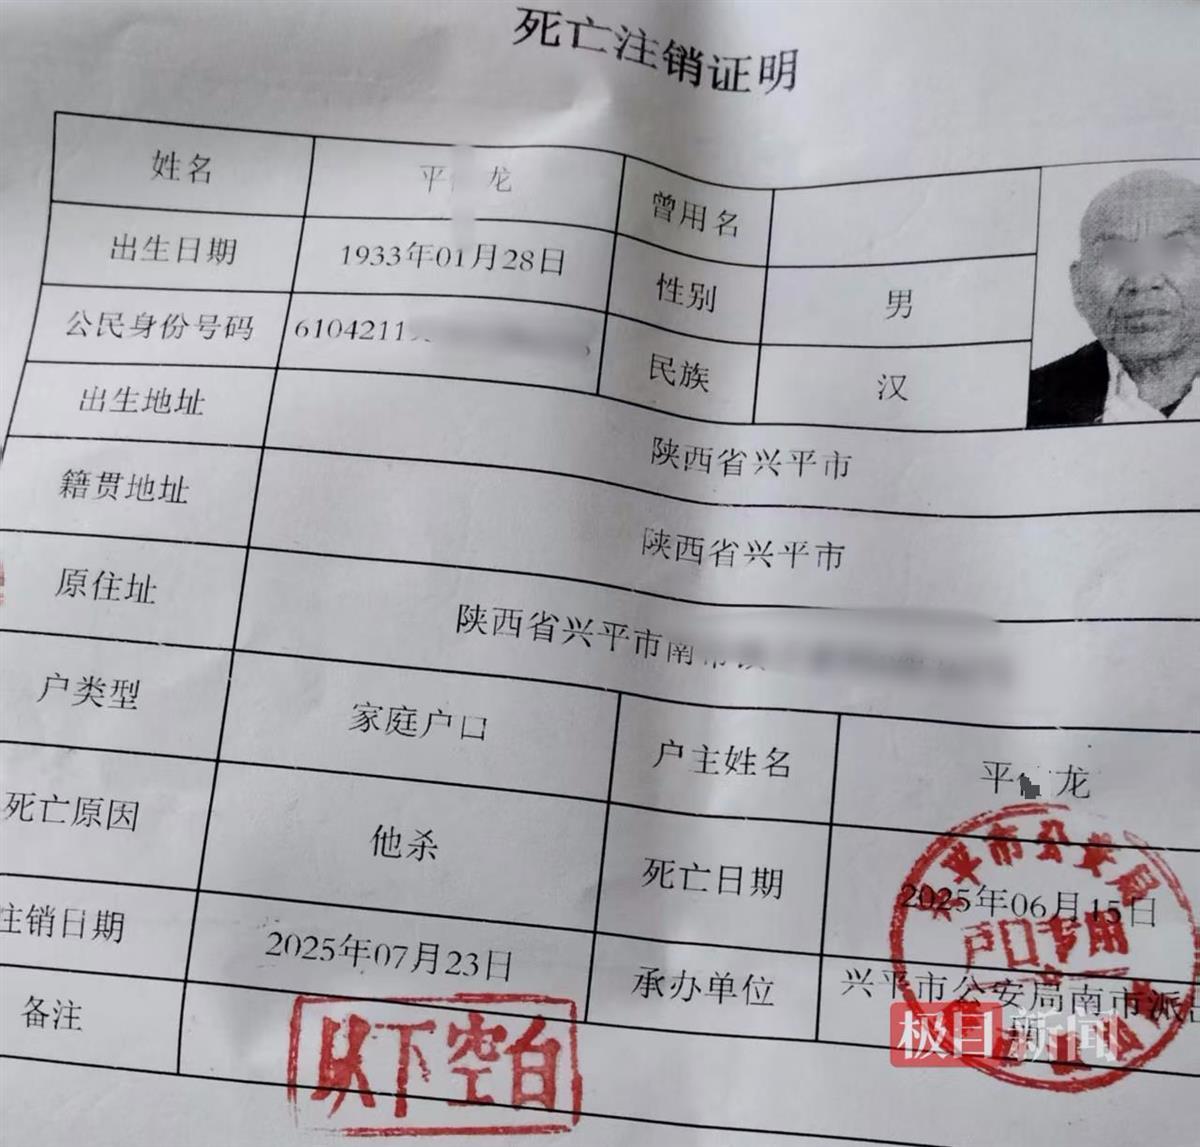 死亡注销证明
姓名 平 龙 曾用名
出生日期 1933年01月28日 性别 男
公民身份号码 6104211 民族 汉
出生地址 陕西省兴平市
籍贯地址 陕西省兴平市
原住址 陕西省兴平市南市
户类型 家庭户口 户主姓名 平 龙
死亡原因 他杀 死亡日期 2025年06月15日
注销日期 2025年07月23日 承办单位 兴平市公安局南市派
备注
以下空白
平市公安局
户口专用
极目新闻